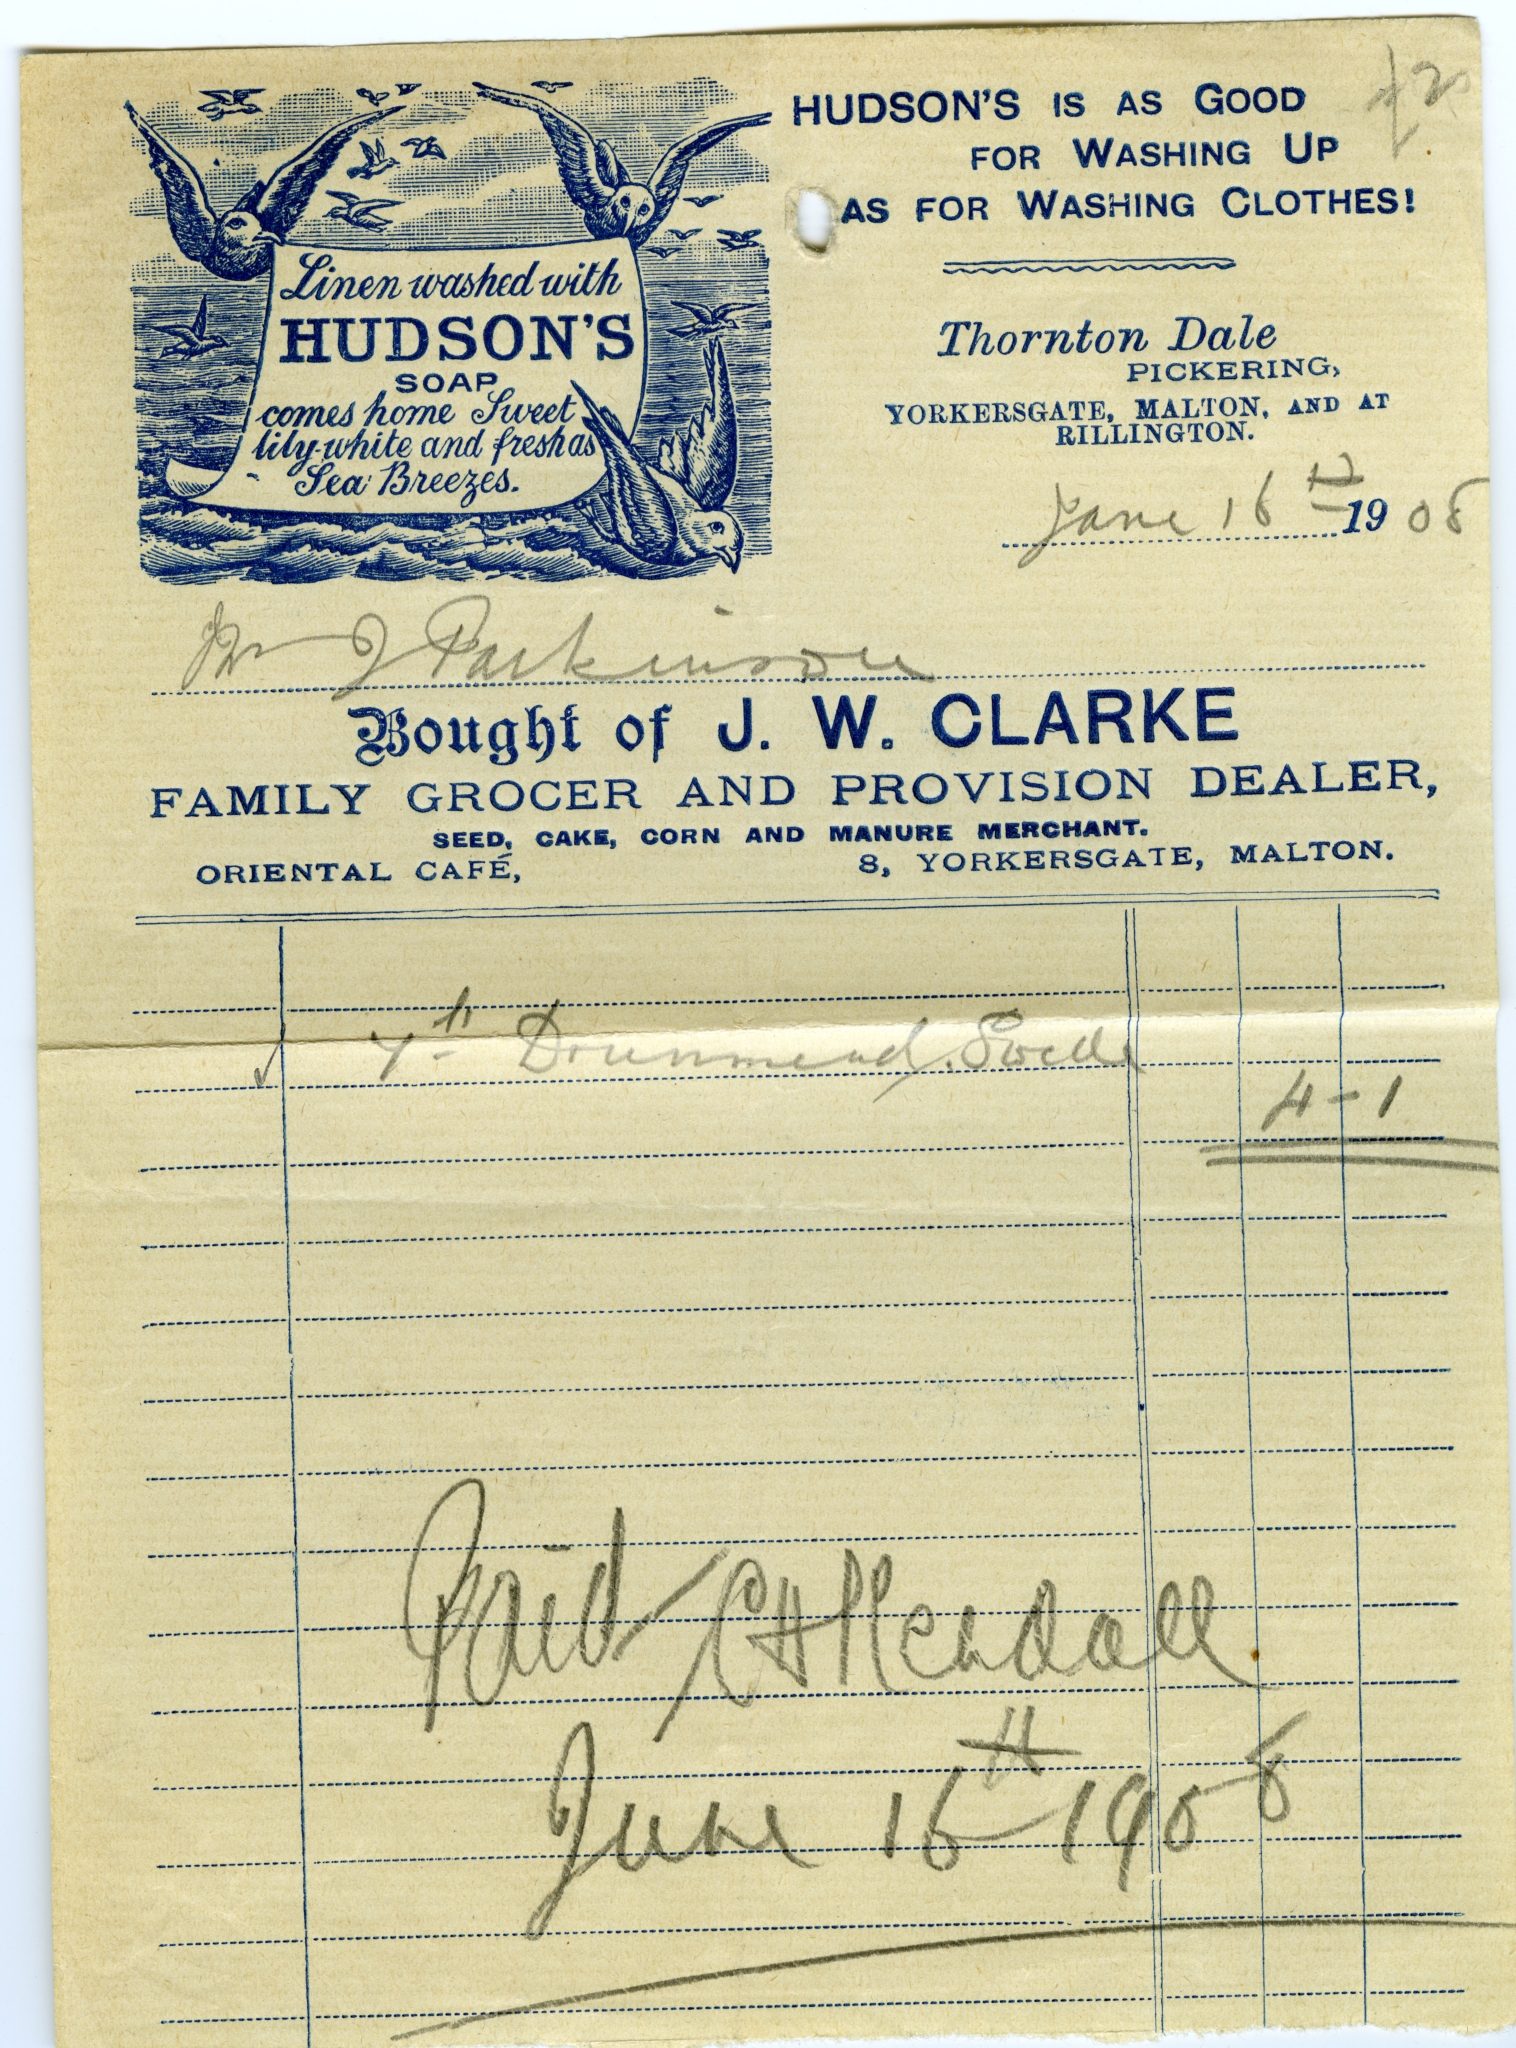 HUDSON'S IS AS GOOD
FOR WASHING UP
AS FOR WASHING CLOTHES!
Linen washed with
HUDSON'S
SOAP
comes home Sweet
lily-white and fresh as
Sea Breezes.
Thornton Dale
PICKERING,
YORKERSGATE, MALTON, AND AT
RILLINGTON.
June 16th 1908
Mr J Parkinson
Bought of J. W. CLARKE
FAMILY GROCER AND PROVISION DEALER,
SEED, CAKE, CORN AND MANURE MERCHANT.
ORIENTAL CAFÉ, 8, YORKERSGATE, MALTON.
Swede
4-1
Paid C H Kendall
June 16th 1908